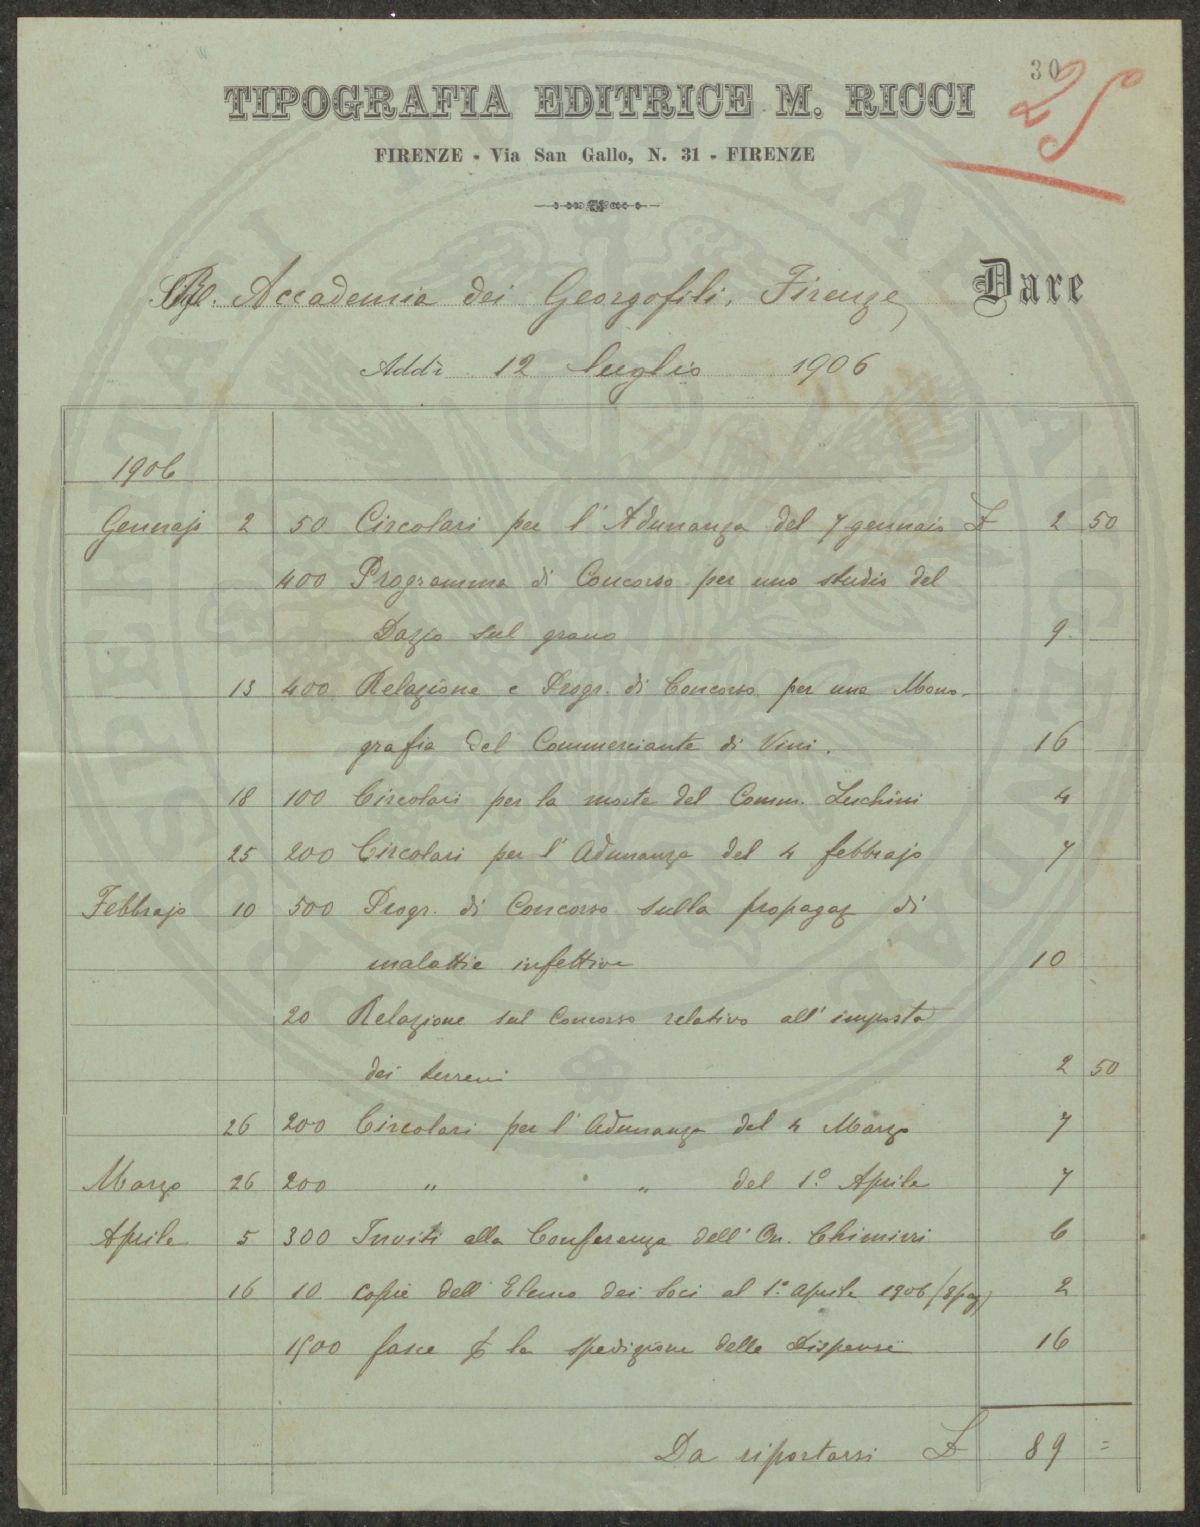 30
25
TIPOGRAFIA EDITRICE M. RICCI
FIRENZE - Via San Gallo, N. 31 - FIRENZE
Accademia dei Georgofili, Firenze Dare
Addì 12 luglio 1906
1906
Gennajo 2 50 Circolari per l'Adunanza del 7 gennaio £ 2 50
400 Programma di Concorso per uno studio del
Dazio sul grano 9
13 400 Relazione e Progr. di Concorso per una Mono-
grafia del Commerciante di Vini. 16
18 100 Circolari per la morte del Comm. Luchini 4
25 200 Circolari per l'Adunanza del 4 febbrajo 7
Febbrajo 10 500 Progr. di Concorso sulla propagaz di
malattie infettive 10
20 Relazione sul Concorso relativo all'imposta
dei terreni 2 50
26 200 Circolari per l'Adunanza del 4 Marzo 7
Marzo 26 200 " " del 1º Aprile 7
Aprile 5 300 Inviti alla Conferenza dell'On. Chimirri 6
16 10 copie dell'Elenco dei Soci al 1º aprile 1906 (8 pag) 2
1500 fasce p la spedizione delle Dispense 16
Da riportarsi £ 89 =
PROSPERITATI PUBLICAE AUGENDAE